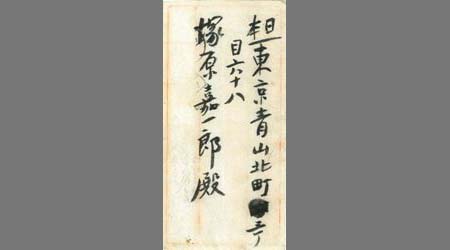 日本
東京青山北町五丁
目六十八
塚原嘉一郎殿